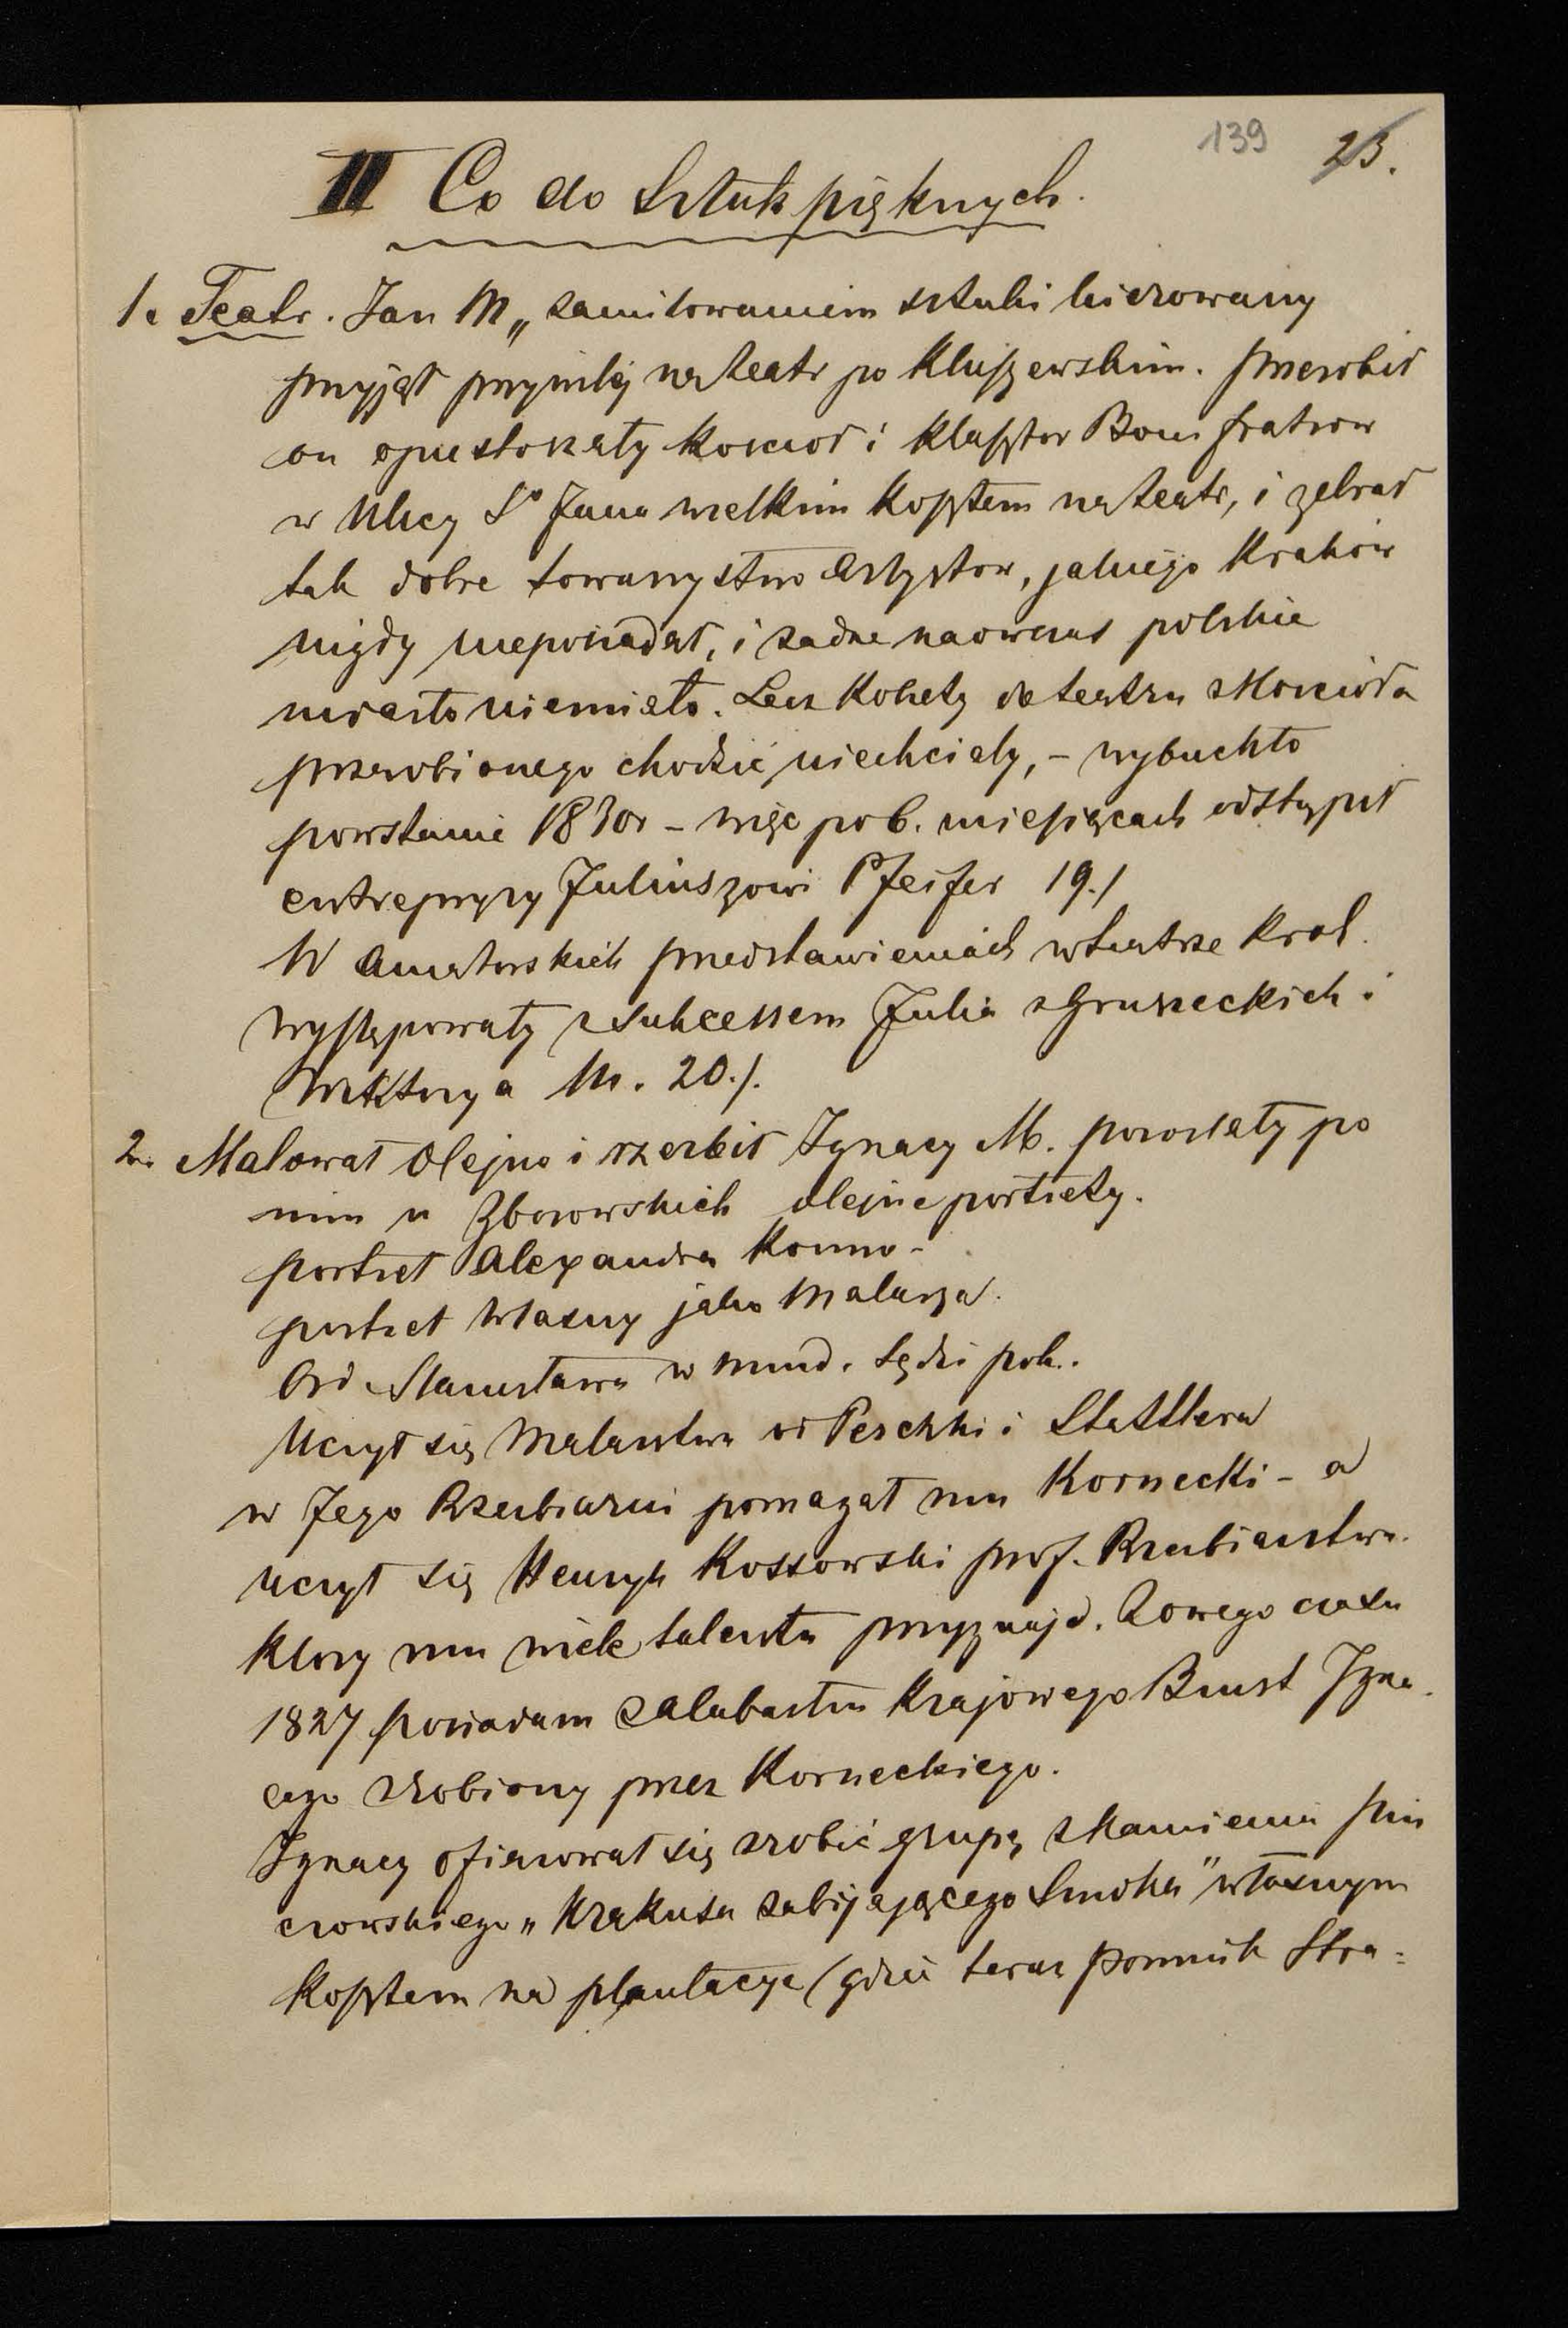 139 23.
II Co do Sztuk pięknych.
1. Teatr. Jan M „ zamiłowaniem sztuki kierowany
przyjął przywilej na teatr po Kluszewskim. przerobił
on opustoszały kościoł i klasztor Boni fratrow
w Ulicy So Jana wielkim kosztem na teatr, i zebrał
tak dobre towarzystwo Artystow, jakiego Krakow
nigdy nieposiadał, i żadne naowczas polskie
miasto niemiało. Lecz kobiety do teatru z kościoła
przerobionego chodzić niechciały, – wybuchło
powstanie 1830r – więc po 6. miesięcach odstąpił
entrepryzy Juliuszowi Pfeifer 19./
W Amatorskich przedstawieniach w teatrze krak.
występowały z sukcessem Julia z Gruszeckich i
Wiktorya M. 20./.
2. Malował olejno i rzezbił Ignacy M. pozostały po
nim u Zborowskich olejne portrety.
portret Alexandra konno –
portret własny jako Malarza.
Ord Stanisława w mund. Sędzi pok.
Uczył się Malarstwa od Peszkki i Stattlera
w Jego Rzezbiarni pomagał mu Kornecki – a
uczył się Henryk Kossowski prof. Rzezbiarstwa.
Ktory mu wiele talentu przyznaje. Z owego czasu
1827 posiadam z alabastru krajowego Biust Igna-
cego zrobiony przez Korneckiego.
Ignacy ofiarował się zrobić grupę z kamienia pin
czowskiego „ Krakusa zabijającego Smoka" własnym
Kosztem na plantacye (gdzie teraz pomnik Stra=